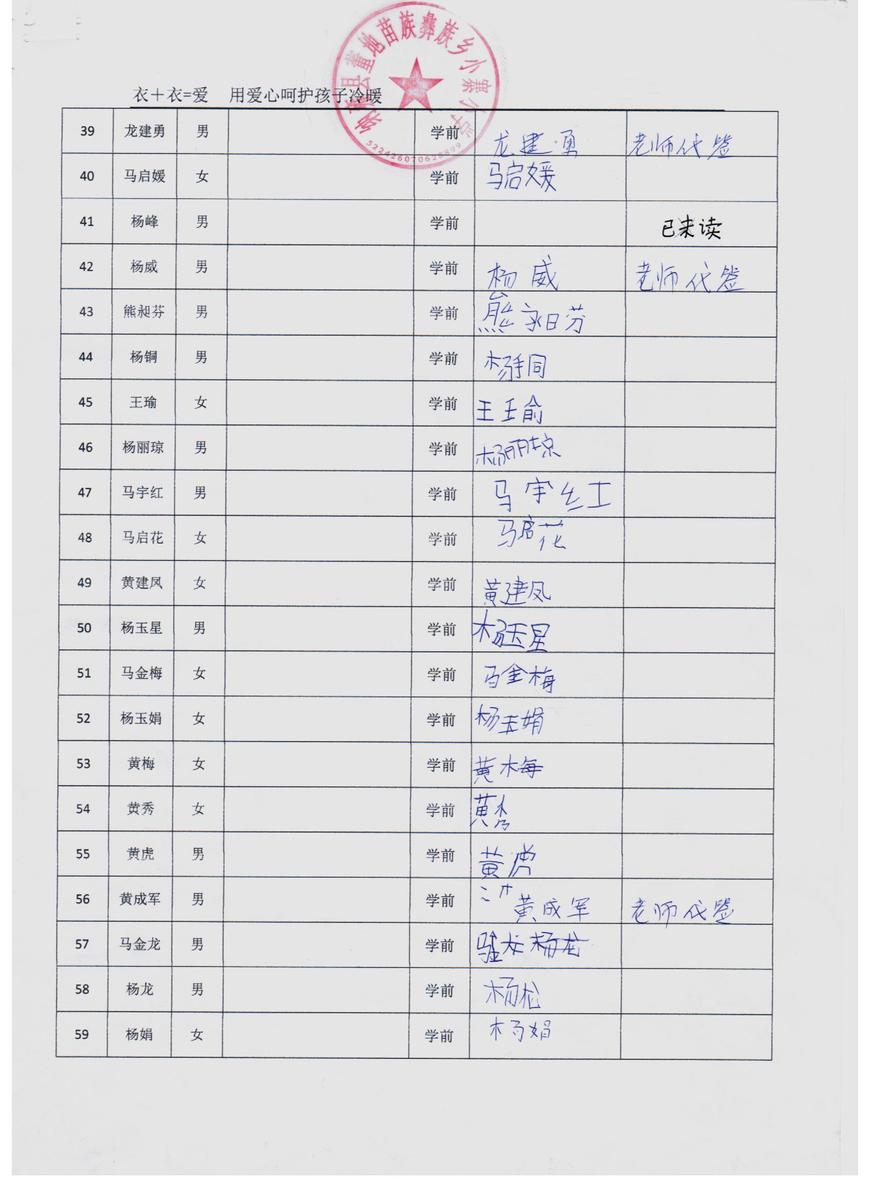 衣＋衣=爱 用爱心呵护孩子冷暖
县董地苗族彝族乡小寨小学
522426070628899
39 龙建勇 男 学前 龙建勇 老师代签
40 马启媛 女 学前 马启媛
41 杨峰 男 学前 已未读
42 杨威 男 学前 杨威 老师代签
43 熊昶芬 男 学前 熊永日芬
44 杨铜 男 学前 杨同
45 王瑜 女 学前 王王俞
46 杨丽琼 男 学前 杨丽琼
47 马宇红 男 学前 马宇红
48 马启花 女 学前 马启花
49 黄建凤 女 学前 黄建凤
50 杨玉星 男 学前 杨玉星
51 马金梅 女 学前 马金梅
52 杨玉娟 女 学前 杨玉娟
53 黄梅 女 学前 黄梅
54 黄秀 女 学前 黄秀
55 黄虎 男 学前 黄虎
56 黄成军 男 学前 黄成军 老师代签
57 马金龙 男 学前 杨龙
58 杨龙 男 学前 杨松
59 杨娟 女 学前 杨娟